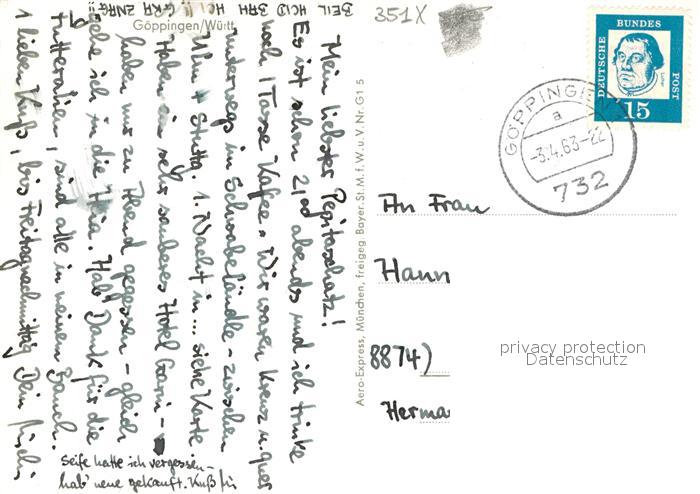 351X
Göppingen/Württ.
Mein liebster Pepitaschatz!
Es ist schon 21⁰⁰ abends und ich trinke
noch 1 Tasse Kaffee. Wir waren kreuz u. quer
unterwegs im Schwabeländle - zwischen
Ulm + Stuttg. 1. Nacht in... siehe Karte
Haben ein sehr sauberes Hotel Garni -
haben nur zu Abend gegessen - gleich
gehe ich in die Heia. Hab' Dank für die
Futteralien, sind alle in meinen Bauch.
1 lieben Kuß, bis Freitagnachmittag Dein
Seife hatte ich vergessen -
hab' neue gekauft. Kuß für
Aero-Express, München, freigeg. Bayer. St. M. f. W. u. V. Nr. G 1 5
DEUTSCHE BUNDESPOST
15
GÖPPINGEN
a
-3.4.63-22
732
An Frau
Hann
8874)
Herma
privacy protection
Datenschutz